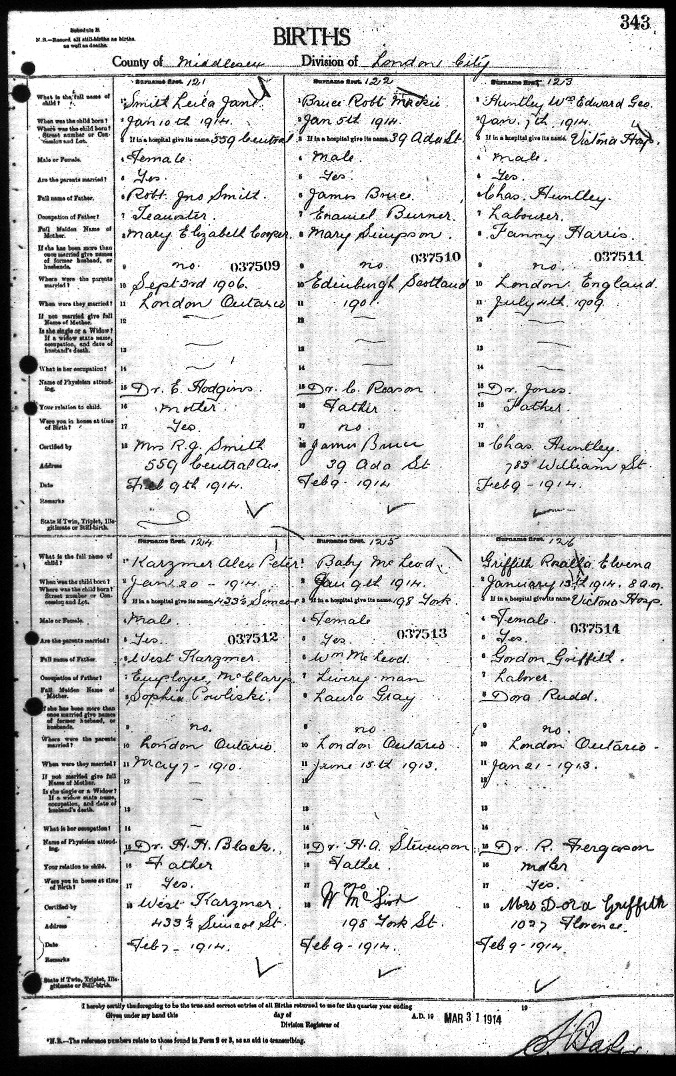 343
Schedule B
N.B.—Record all still-births as births, as well as deaths.
BIRTHS
County of Middlesex Division of London City
Surname first. 1211
Surname first. 1212
Surname first. 1213
What is the full name of child?
1 Smith Leila Jane
1 Bruce Robt Mackie
1 Huntley Wm Edward Geo.
When was the child born?
2 Jan 10th 1914.
2 Jan 5th 1914.
2 Jan. 7th 1914.
Where was the child born? Street number or Concession and Lot.
3 If in a hospital give its name. 559 Central
3 If in a hospital give its name. 39 Ada St.
3 If in a hospital give its name. Victoria Hosp.
Male or Female.
4 Female.
4 Male.
4 Male.
Are the parents married?
5 Yes.
5 Yes.
5 Yes.
Full name of Father.
6 Robt. Jno Smith.
6 James Bruce.
6 Chas. Huntley.
Occupation of Father?
7 Teamster.
7 Enamel Burner.
7 Labourer.
Full Maiden Name of Mother.
8 Mary Elizabeth Cooper.
8 Mary Simpson.
8 Fanny Harris.
If she has been more than once married give names of former husband, or husbands.
9 no. 037509
9 no. 037510
9 no. 037511
Where were the parents married?
10 Sept 3rd 1906.
10 Edinburgh Scotland
10 London England.
When were they married?
11 London Ontario
11 190
11 July 4th 1909
If not married give full Name of Mother.
12 —
12 —
12 —
Is she single or a Widow? If a widow state name, occupation, and date of husband's death.
13 —
13 —
13
What is her occupation?
14 —
14 —
14 —
Name of Physician attending.
15 Dr. E. Hodgins.
15 Dr. C. Reason
15 Dr. Jones.
Your relation to child.
16 mother.
16 Father
16 Father.
Were you in house at time of Birth?
17 Yes.
17 no.
17
Certified by
18 Mrs R. J. Smith
18 James Bruce
18 Chas. Huntley.
Address
559 Central Ave.
39 Ada St
783 William St.
Date
Feb 9th 1914.
Feb 9 - 1914.
Feb 9 - 1914.
Remarks
State if Twin, Triplet, Illegitimate or Still-birth.
Surname first. 1214
Surname first. 1215
Surname first. 1216
What is the full name of child?
1 Karzmer Alex Peter
1 Baby McLeod
Griffith Rosella Elvena
When was the child born?
2 Jan. 20 - 1914.
2 Jan 9th 1914.
2 January 13th 1914. 8 a.m.
Where was the child born? Street number or Concession and Lot.
3 If in a hospital give its name. 433½ Simcoe
3 If in a hospital give its name. 198 York.
3 If in a hospital give its name Victoria Hosp.
Male or Female.
4 Male.
4 Female
4 Female
Are the parents married?
5 Yes. 037512
5 Yes. 037513
5 Yes. 037514
Full name of Father.
6 West Karzmer
6 Wm McLeod.
6 Gordon Griffith.
Occupation of Father?
7 Employee, McClary
7 Livery-man
7 Laborer.
Full Maiden Name of Mother.
8 Sophia Powliski.
8 Laura Gray
8 Dora Rudd.
If she has been more than once married give names of former husband, or husbands.
9 no.
9 no
9 no.
Where were the parents married?
10 London Ontario.
10 London Ontario
10 London Ontario -
When were they married?
11 May 7 - 1910.
11 June 15th 1913.
11 Jan 21 - 1913.
If not married give full Name of Mother.
12 —
12
12
Is she single or a Widow? If a widow state name, occupation, and date of husband's death.
13 —
13
13
What is her occupation?
14 —
14
14
Name of Physician attending.
15 Dr. H. H. Black.
15 Dr. H. A. Stevenson
15 Dr. R. Fergason
Your relation to child.
16 Father
16 Father.
16
Were you in house at time of Birth?
17 Yes.
17 no
17 Yes.
Certified by
18 West Karzmer.
18 Wm McLeod
18 Mrs Dora Griffith
Address
433½ Simcoe St.
198 York St.
1027 Florence.
Date
Feb 7 - 1914.
Feb 9 - 1914.
Feb 9 - 1914.
Remarks
State if Twin, Triplet, Illegitimate or Still-birth.
I hereby certify the foregoing to be the true and correct entries of all Births returned to me for the quarter year ending 19
Given under my hand this day of A.D. 19 MAR 31 1914
Division Registrar of
*N.B.—The reference numbers relate to those found in Form 2 or 3, as an aid to transcribing.